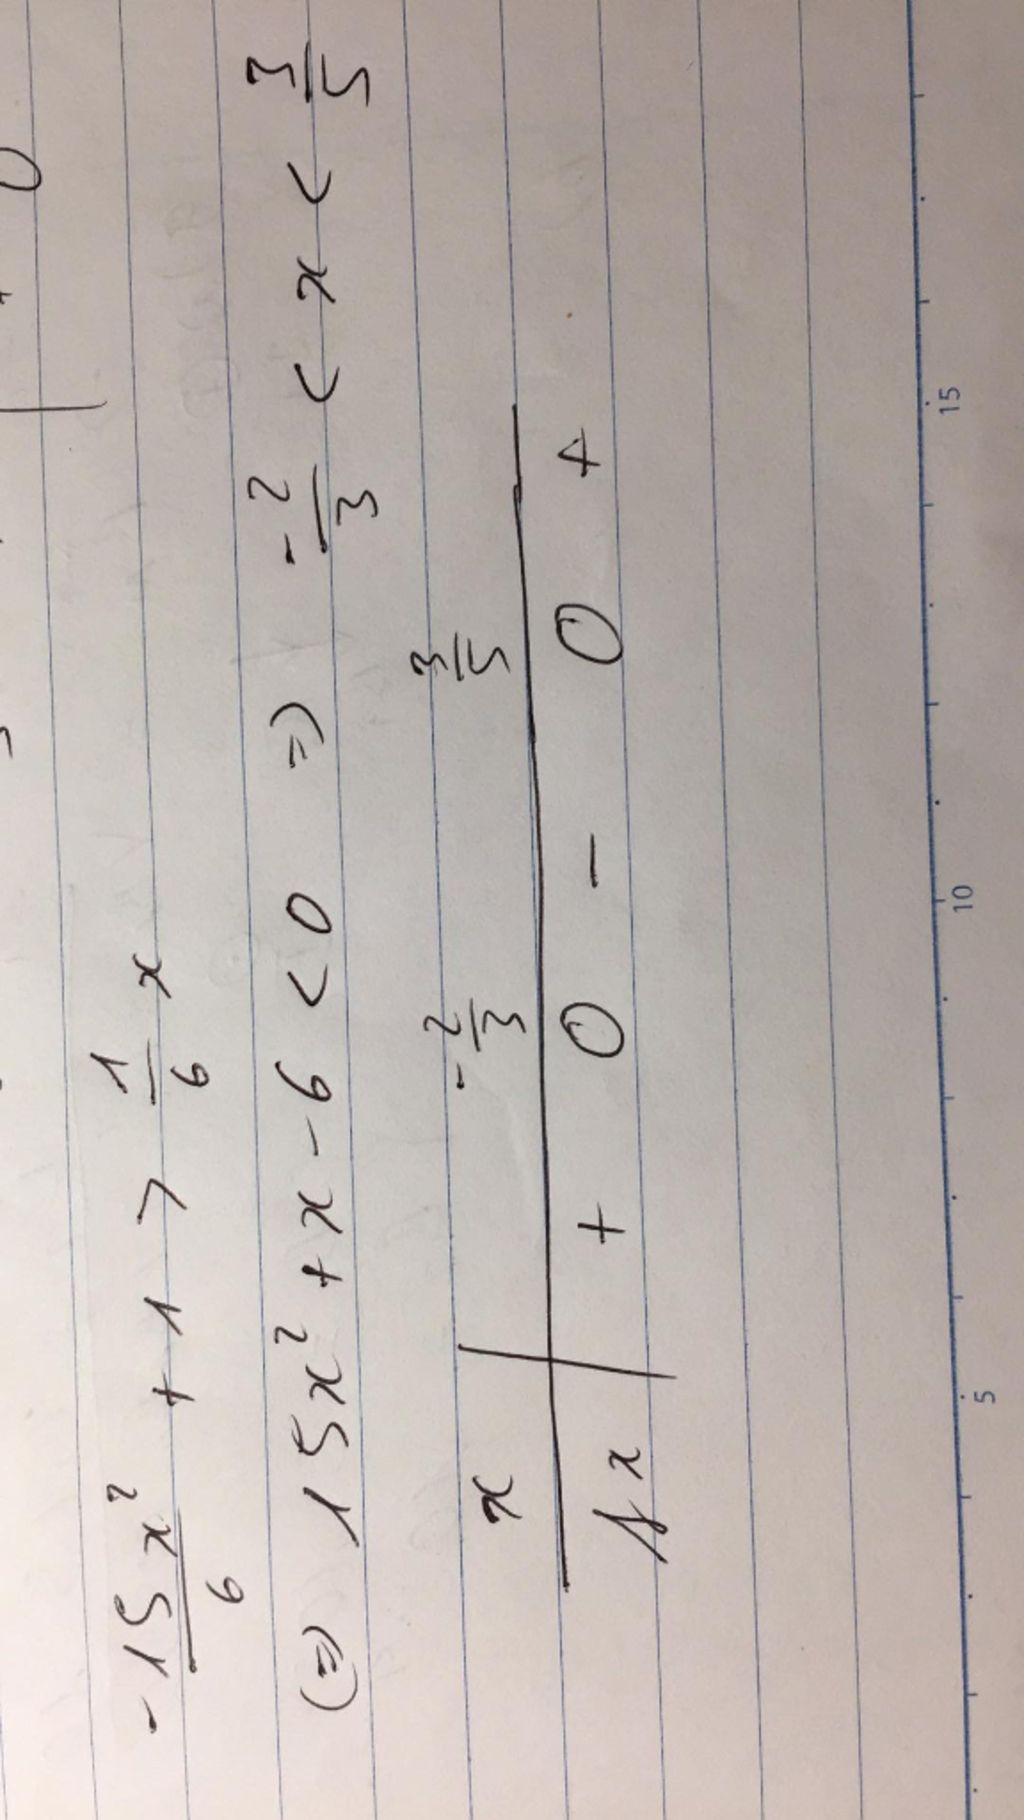 -15x²/6 + 1 > 1/6 x
(=) 15x² + x - 6 < 0 =) -2/3 < x < 3/5
x -2/3 3/5
fx + 0 - 0 +
5 10 15